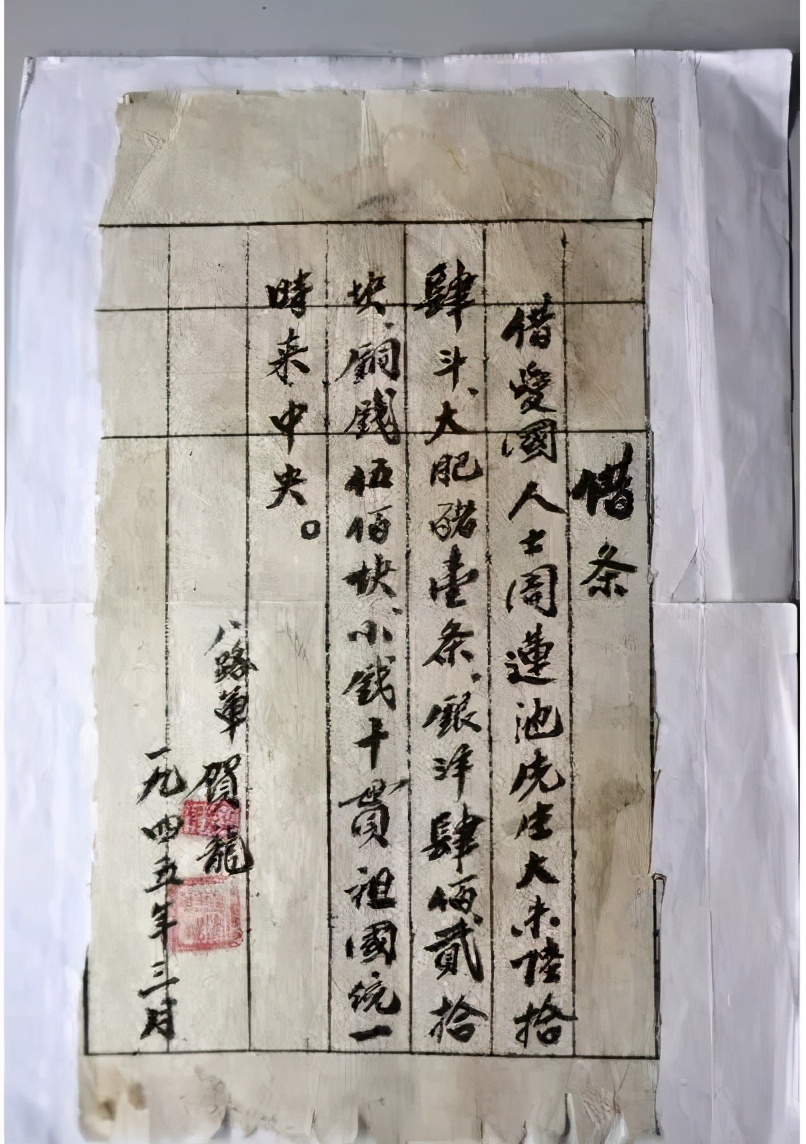 借条
借愛國人士周蓮池先生大米陸拾
肆斗、大肥豬壹条、銀洋肆佰貳拾
块、銅銭伍佰块、小銭十貫祖國統一
時来中央。
八路軍 賀龍
一九四五年三月